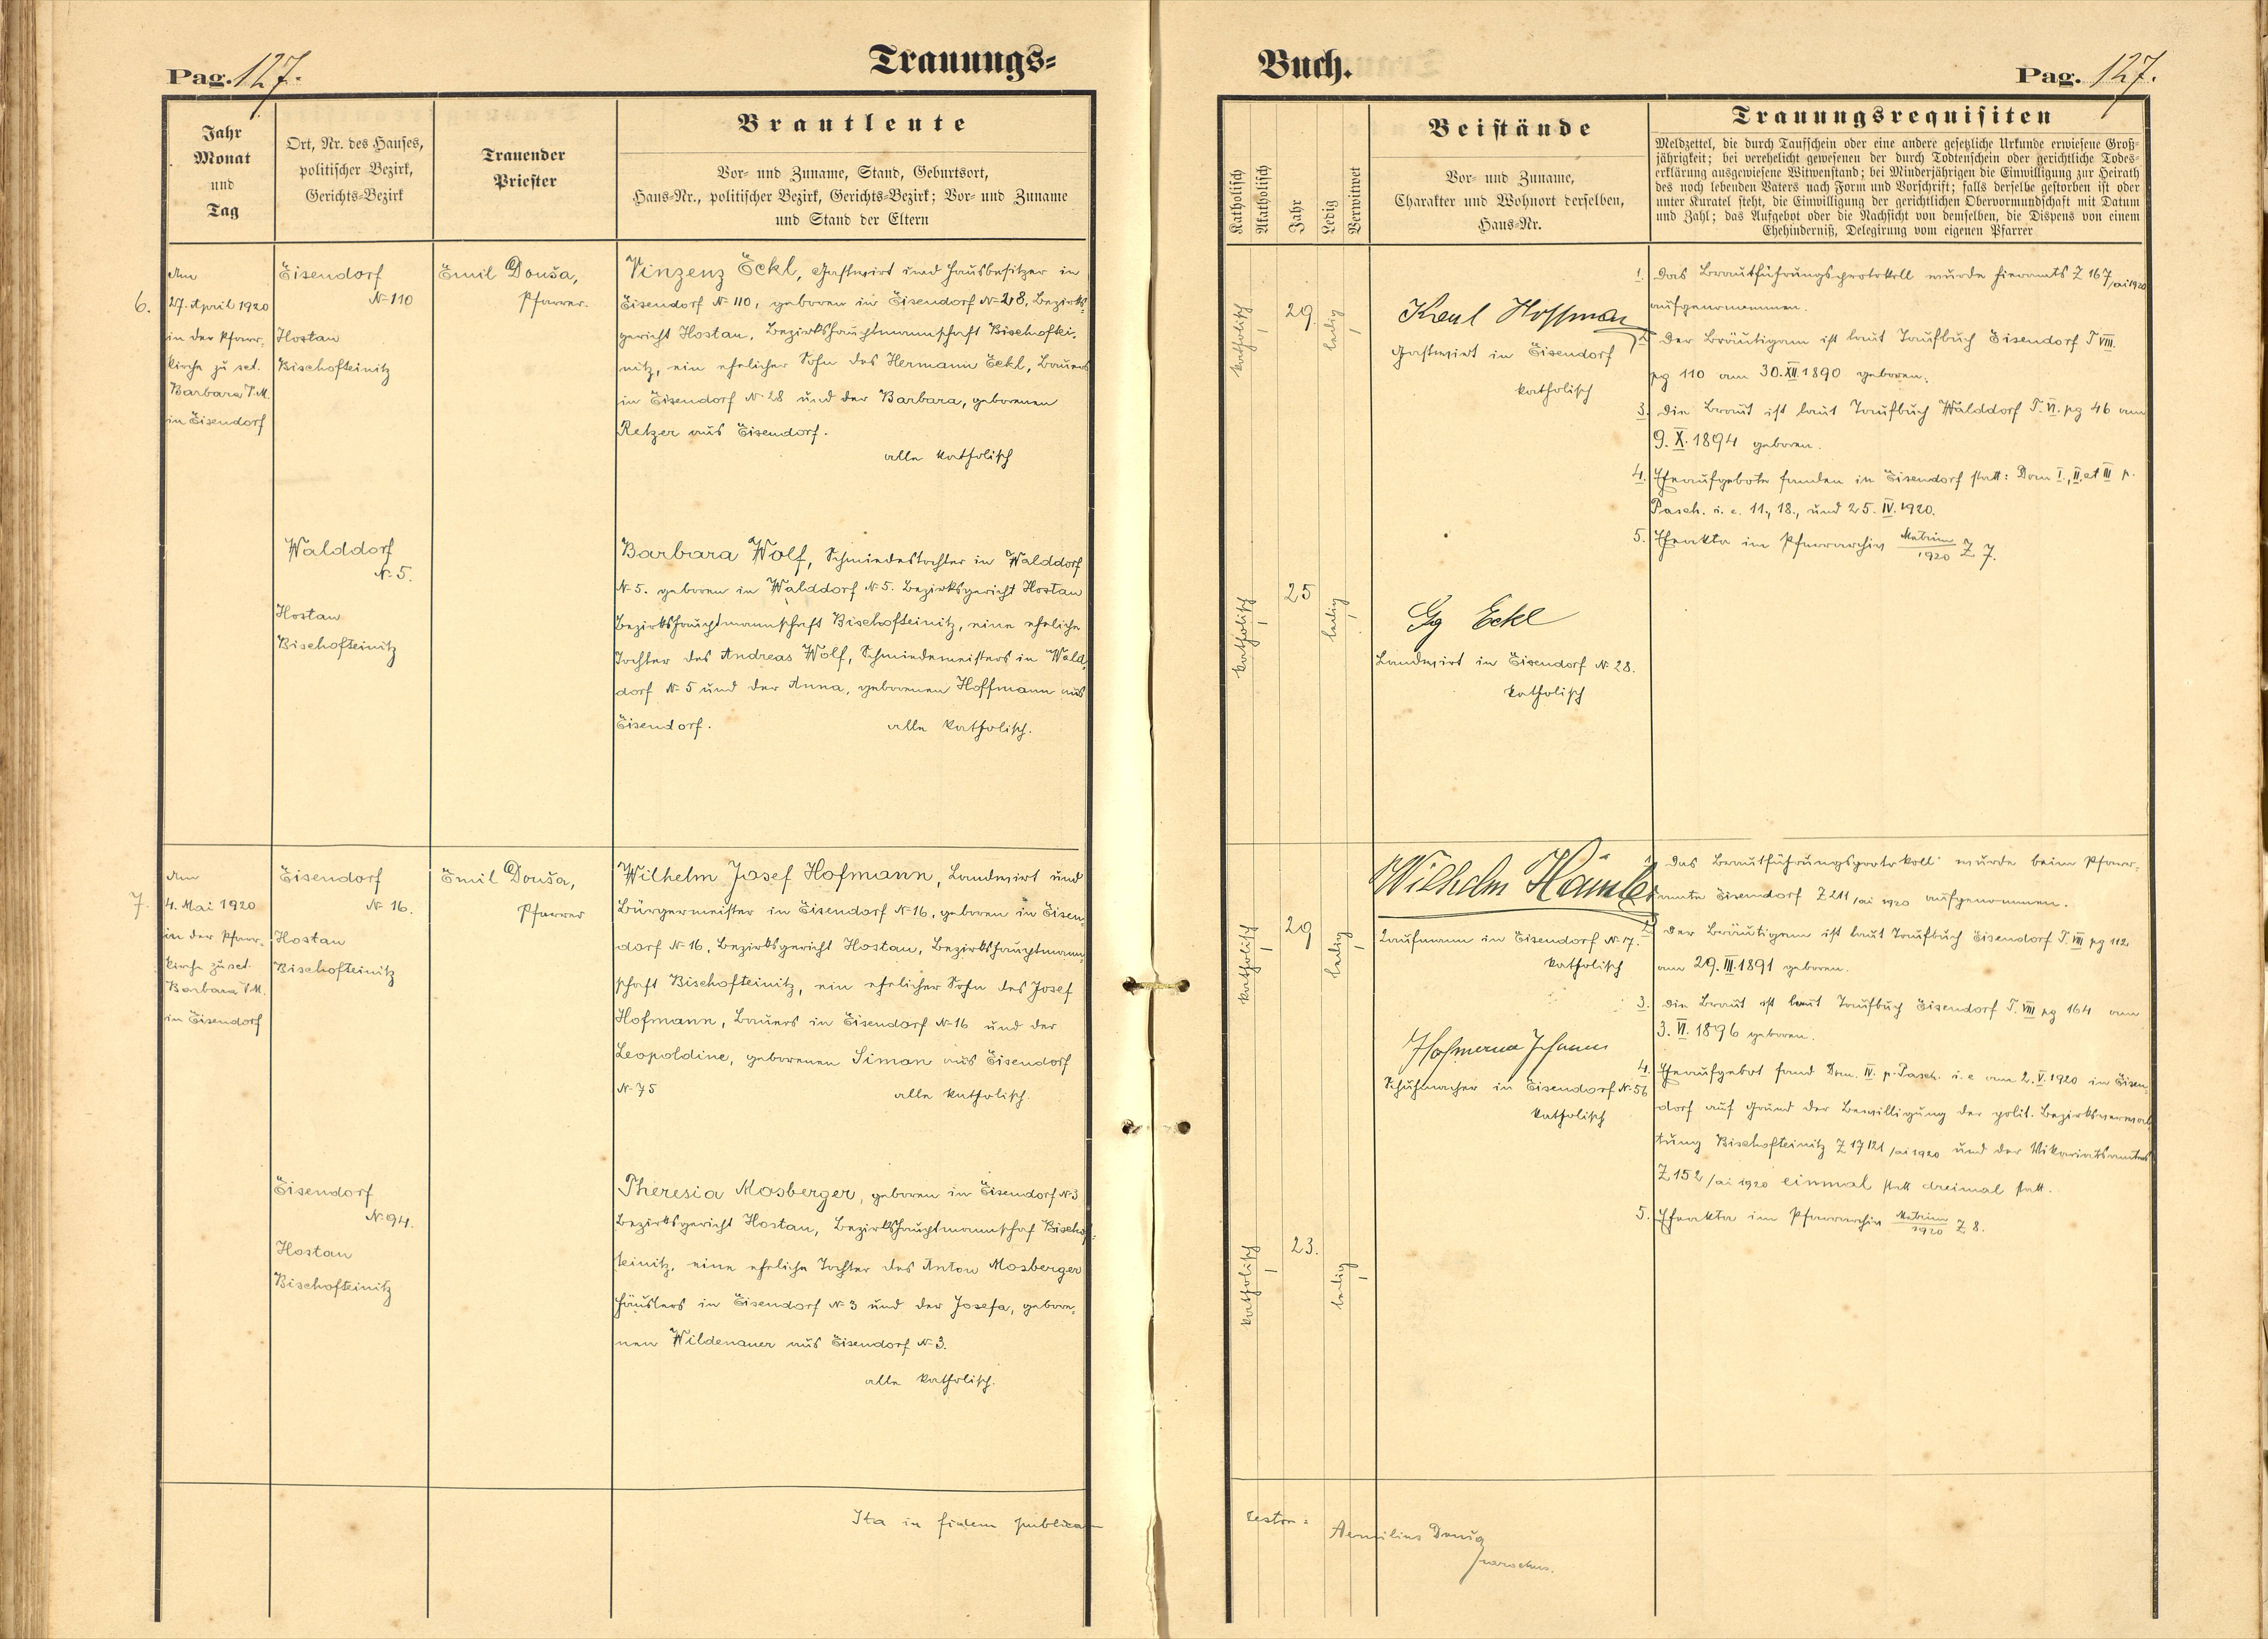 Pag. 127.
Trauungs=
Jahr
Monat
und
Tag
Ort, Nr. des Hauses,
politischer Bezirk,
Gerichts=Bezirk
Trauender
Priester
Brautleute
Vor= und Zuname, Stand, Geburtsort,
Haus=Nr., politischer Bezirk, Gerichts=Bezirk; Vor= und Zuname
und Stand der Eltern
6.
Am
27. April 1920
in der Pfarr-
kirche zu sct.
Barbara V. M.
in Eisendorf
Eisendorf
No 110
Hostau
Bischofteinitz
Emil Douša,
Pfarrer.
Vinzenz Eckl, Gastwirt und Hausbesitzer in
Eisendorf No 110, geboren in Eisendorf No 28, Bezirks-
gericht Hostau, Bezirkshauptmannschaft Bischoftei-
nitz, ein ehelicher Sohn des Hermann Eckl, Bauers
in Eisendorf No 28 und der Barbara, geborenen
Retzer aus Eisendorf.
alle katholisch
Walddorf
No 5.
Hostau
Bischofteinitz
Barbara Wolf, Schmiedestochter in Walddorf
No 5. geboren in Walddorf No 5. Bezirksgericht Hostau
Bezirkshauptmannschaft Bischofteinitz, eine eheliche
Tochter des Andreas Wolf, Schmiedemeisters in Wald-
dorf No 5 und der Anna, geborenen Hoffmann aus
Eisendorf.
alle katholisch.
7.
Am
4. Mai 1920
in der Pfarr-
kirche zu sct.
Barbara V. M.
in Eisendorf
Eisendorf
No 16.
Hostau
Bischofteinitz
Emil Douša,
Pfarrer
Wilhelm Josef Hofmann, Landwirt und
Bürgermeister in Eisendorf No 16, geboren in Eisen-
dorf No 16, Bezirksgericht Hostau, Bezirkshauptmann-
schaft Bischofteinitz, ein ehelicher Sohn des Josef
Hofmann, Bauers in Eisendorf No 16 und der
Leopoldine, geborenen Siman aus Eisendorf
No 75
alle katholisch.
Eisendorf
No 94.
Hostau
Bischofteinitz
Theresia Mosberger, geboren in Eisendorf No 3
Bezirksgericht Hostau, Bezirkshauptmannschaf Bischof-
teinitz, eine eheliche Tochter des Anton Mosberger
Häuslers in Eisendorf No 3 und der Josefa, gebore-
nen Wildenauer aus Eisendorf No 3.
alle katholisch.
Ita in fidem publicam
Buch.
Pag. 127.
Katholisch
Akatholisch
Jahr
Ledig
Verwitwet
Beistände
Vor= und Zuname,
Charakter und Wohnort derselben,
Haus=Nr.
Trauungsrequisiten
Meldzettel, die durch Taufschein oder eine andere gesetzliche Urkunde erwiesene Groß=
jährigkeit; bei verehelicht gewesenen der durch Todtenschein oder gerichtliche Todes=
erklärung ausgewiesene Witwenstand; bei Minderjährigen die Einwilligung zur Heirath
des noch lebenden Vaters nach Form und Vorschrift; falls derselbe gestorben ist oder
unter Kuratel steht, die Einwilligung der gerichtlichen Obervormundschaft mit Datum
und Zahl; das Aufgebot oder die Nachsicht von demselben, die Dispens von einem
Ehehinderniß, Delegirung vom eigenen Pfarrer
katholisch
29.
ledig
Karl Hoffman
Gastwirt in Eisendorf
katholisch
katholisch
25
ledig
Gg Eckl
Landwirt in Eisendorf No 28.
katholisch
1. Das Brautführungsprotokoll wurde hieramts Z 167/ai 1920
aufgenommen.
2. Der Bräutigam ist laut Taufbuch Eisendorf T VIII.
pg 110 am 30. XII. 1890 geboren.
3. Die Braut ist laut Taufbuch Walddorf T. VI. pg 46 am
9. X. 1894 geboren.
4. Eheaufgebote fanden in Eisendorf statt: Dom I., II. et III p.
Pasch. i. e. 11., 18., und 25. IV. 1920.
5. Eheakta im Pfarrarchiv Matrim/1920 Z 7.
katholisch
29
ledig
Wilhelm Hämler
Kaufmann in Eisendorf No 17.
katholisch
Hofmann Johann
Schuhmacher in Eisendorf No 56
katholisch
katholisch
23.
ledig
1. Das Brautführungsprotokoll wurde beim Pfarr-
amte Eisendorf Z 211/ai 1920 aufgenommen.
2. Der Bräutigam ist laut Taufbuch Eisendorf T. VIII pg 112
am 29. III. 1891 geboren.
3. Die Braut ist laut Taufbuch Eisendorf T. VIII pg 164 am
3. VI. 1896 geboren.
4. Eheaufgebot fand Dom. IV. p. Pasch. i. e am 2. V. 1920 in Eisen-
dorf auf Grund der Bewilligung der polit. Bezirksverwal-
tung Bischofteinitz Z 17121/ai 1920 und der Vikariatsamtes
Z 152/ai 1920 einmal statt dreimal statt.
5. Eheakta im Pfarrarchiv Matrim/1920 Z 8.
testor:
Aemilius Douša
parochus.